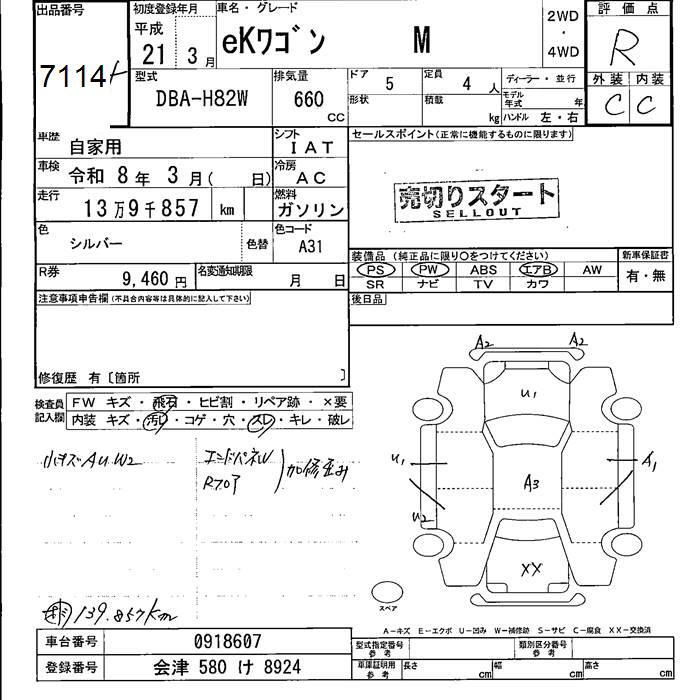 出品番号
7114
初度登録年月
平成
21 3 月
車名・グレード
eKワゴン M
2WD
・
4WD
評価点
R
外装 内装
C C
型式
DBA-H82W
排気量
660
CC
ドア 5
形状
定員 4 人
積載 kg
ディーラー・並行
モデル年式 年
ハンドル 左・右
車歴 自家用
シフト IAT
車検 令和 8 年 3 月( 日)
冷房 AC
走行 13万9千857 km
燃料 ガソリン
色 シルバー 色替
色コード A31
R券 9,460 円
名変通知期限 月 日
セールスポイント(正常に機能するものに限ります)
売切りスタート
SELLOUT
装備品(純正品に限り○をつけてください)
PS PW ABS エアB AW
SR ナビ TV カワ
新車保証書
有・無
後日品
注意事項申告欄(不具合内容等は具体的に記入して下さい)
修復歴 有〔箇所 〕
検査員記入欄
FW キズ・飛石・ヒビ割・リペア跡・×要
内装 キズ・汚レ・コゲ・穴・スレ・キレ・破レ
小キズAUW2
エンドパネル
Rフロア
加修歪み
139.857km
A2 A2
U1
U1
A1
A3
U2
XX
スペア
A-キズ E-エクボ U-凹み W-補修跡 S-サビ C-腐食 XX-交換済
車台番号 0918607
登録番号 会津 580 け 8924
型式指定番号 参考
類別区分番号 参考
車庫証明用 参考
長さ cm
幅 cm
高さ cm